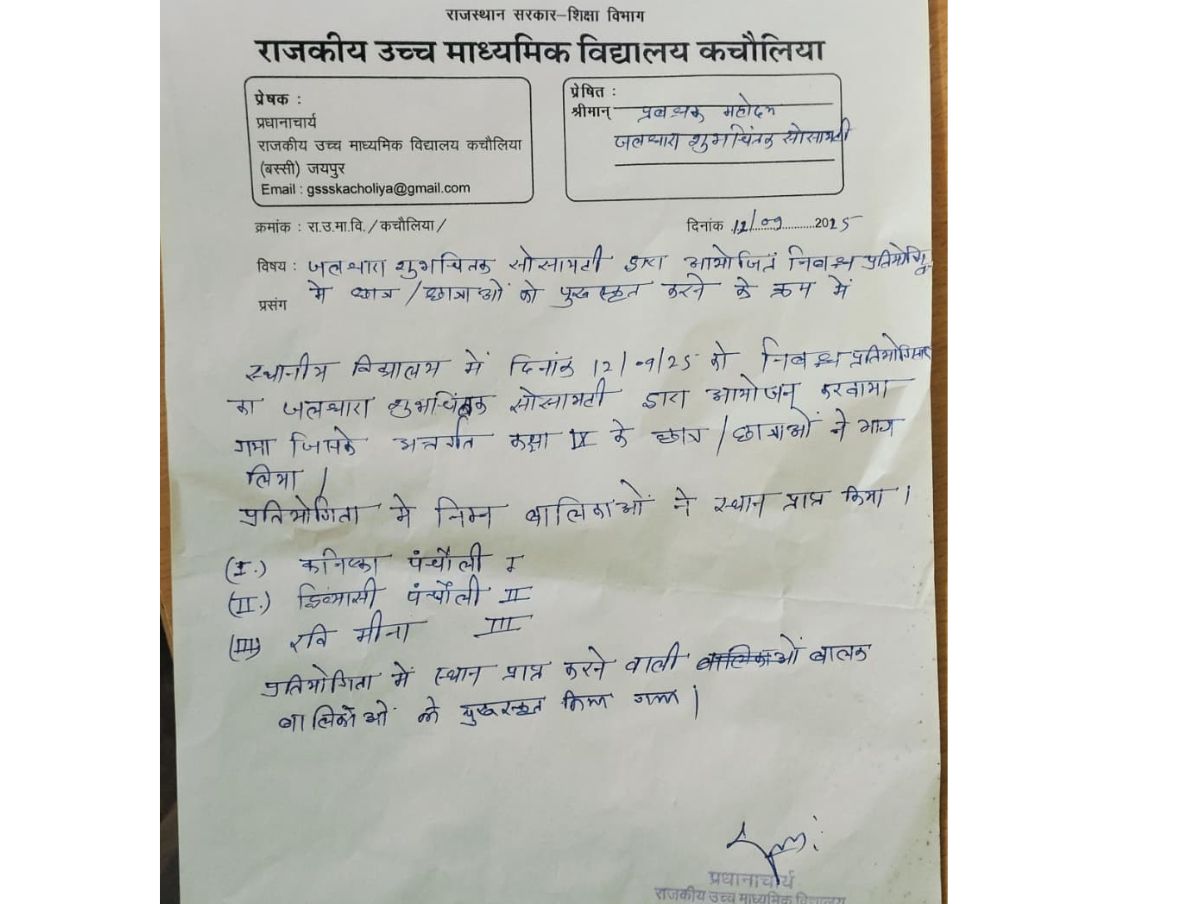 राजस्थान सरकार–शिक्षा विभाग
राजकीय उच्च माध्यमिक विद्यालय कचौलिया
प्रेषक :
प्रधानाचार्य
राजकीय उच्च माध्यमिक विद्यालय कचौलिया
(बस्सी) जयपुर
Email : gssskacholiya@gmail.com
प्रेषित :
श्रीमान् प्रबन्धक महोदय
जलधारा शुभचिंतक सोसायटी
क्रमांक : रा.उ.मा.वि. / कचौलिया /
दिनांक 12/09/2025
विषय : जलधारा शुभचिंतक सोसायटी द्वारा आयोजित निबन्ध
में छात्र / छात्राओं को पुरुस्कृत करने के क्रम में
प्रसंग
स्थानीय विद्यालय में दिनांक 12/09/25 को निबन्ध
का जलधारा शुभचिंतक सोसायटी द्वारा आयोजन करवाया
गया जिसके अन्तर्गत कक्षा IX के छात्र / छात्राओं ने भाग
लिया /
प्रतियोगिता में निम्न बालिकाओं ने स्थान प्राप्त किया ।
(I.) कनिष्का पंचौली I
(II.) पंचौली II
(III) रवि मीना III
प्रतियोगिता में स्थान प्राप्त करने वाली बालिकाओं बालक
बालिकाओं को पुरुस्कृत किया गया |
प्रधानाचार्य
राजकीय उच्च माध्यमिक विद्यालय